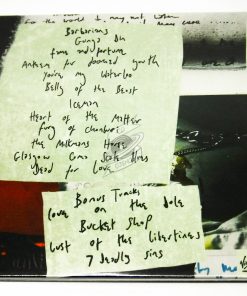 for the world I may not
Barbarians
Gunga Din
fame and fortune
Anthem for doomed youth
You're my Waterloo
Belly of the Beast
Iceman
Heart of the Matter
fury of chonburi
the Milkmans Horse
Glasgow Coma Scale Blues
Dead for Love
Bonus Tracks
love on the dole
Bucket Shop
Lust of the Libertines
7 Deadly Sins